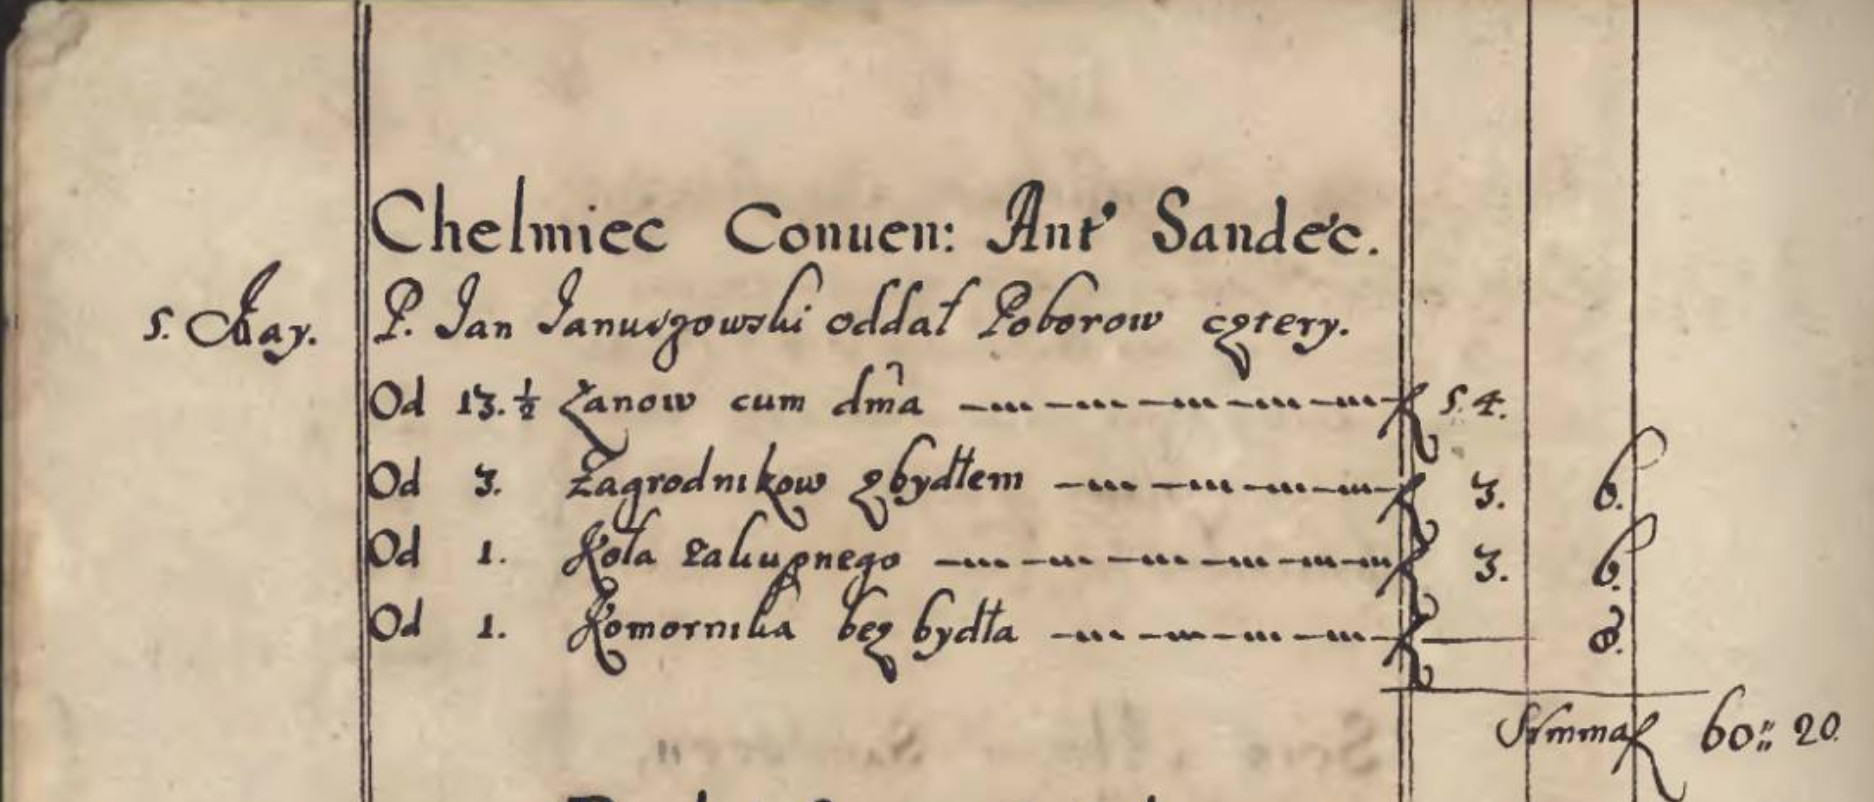 Chelmiec Conuen: Ant' Sandec.
5. May. P. Jan Januszowski oddał Poborow cztery.
Od 13. ½ Łanow cum dma f 54.
Od 3. Zagrodnikow z bydłem f 3. 6.
Od 1. Koła Zakupnego f 3. 6.
Od 1. Komornika bez bydła f — 8.
Summa f 60:: 20